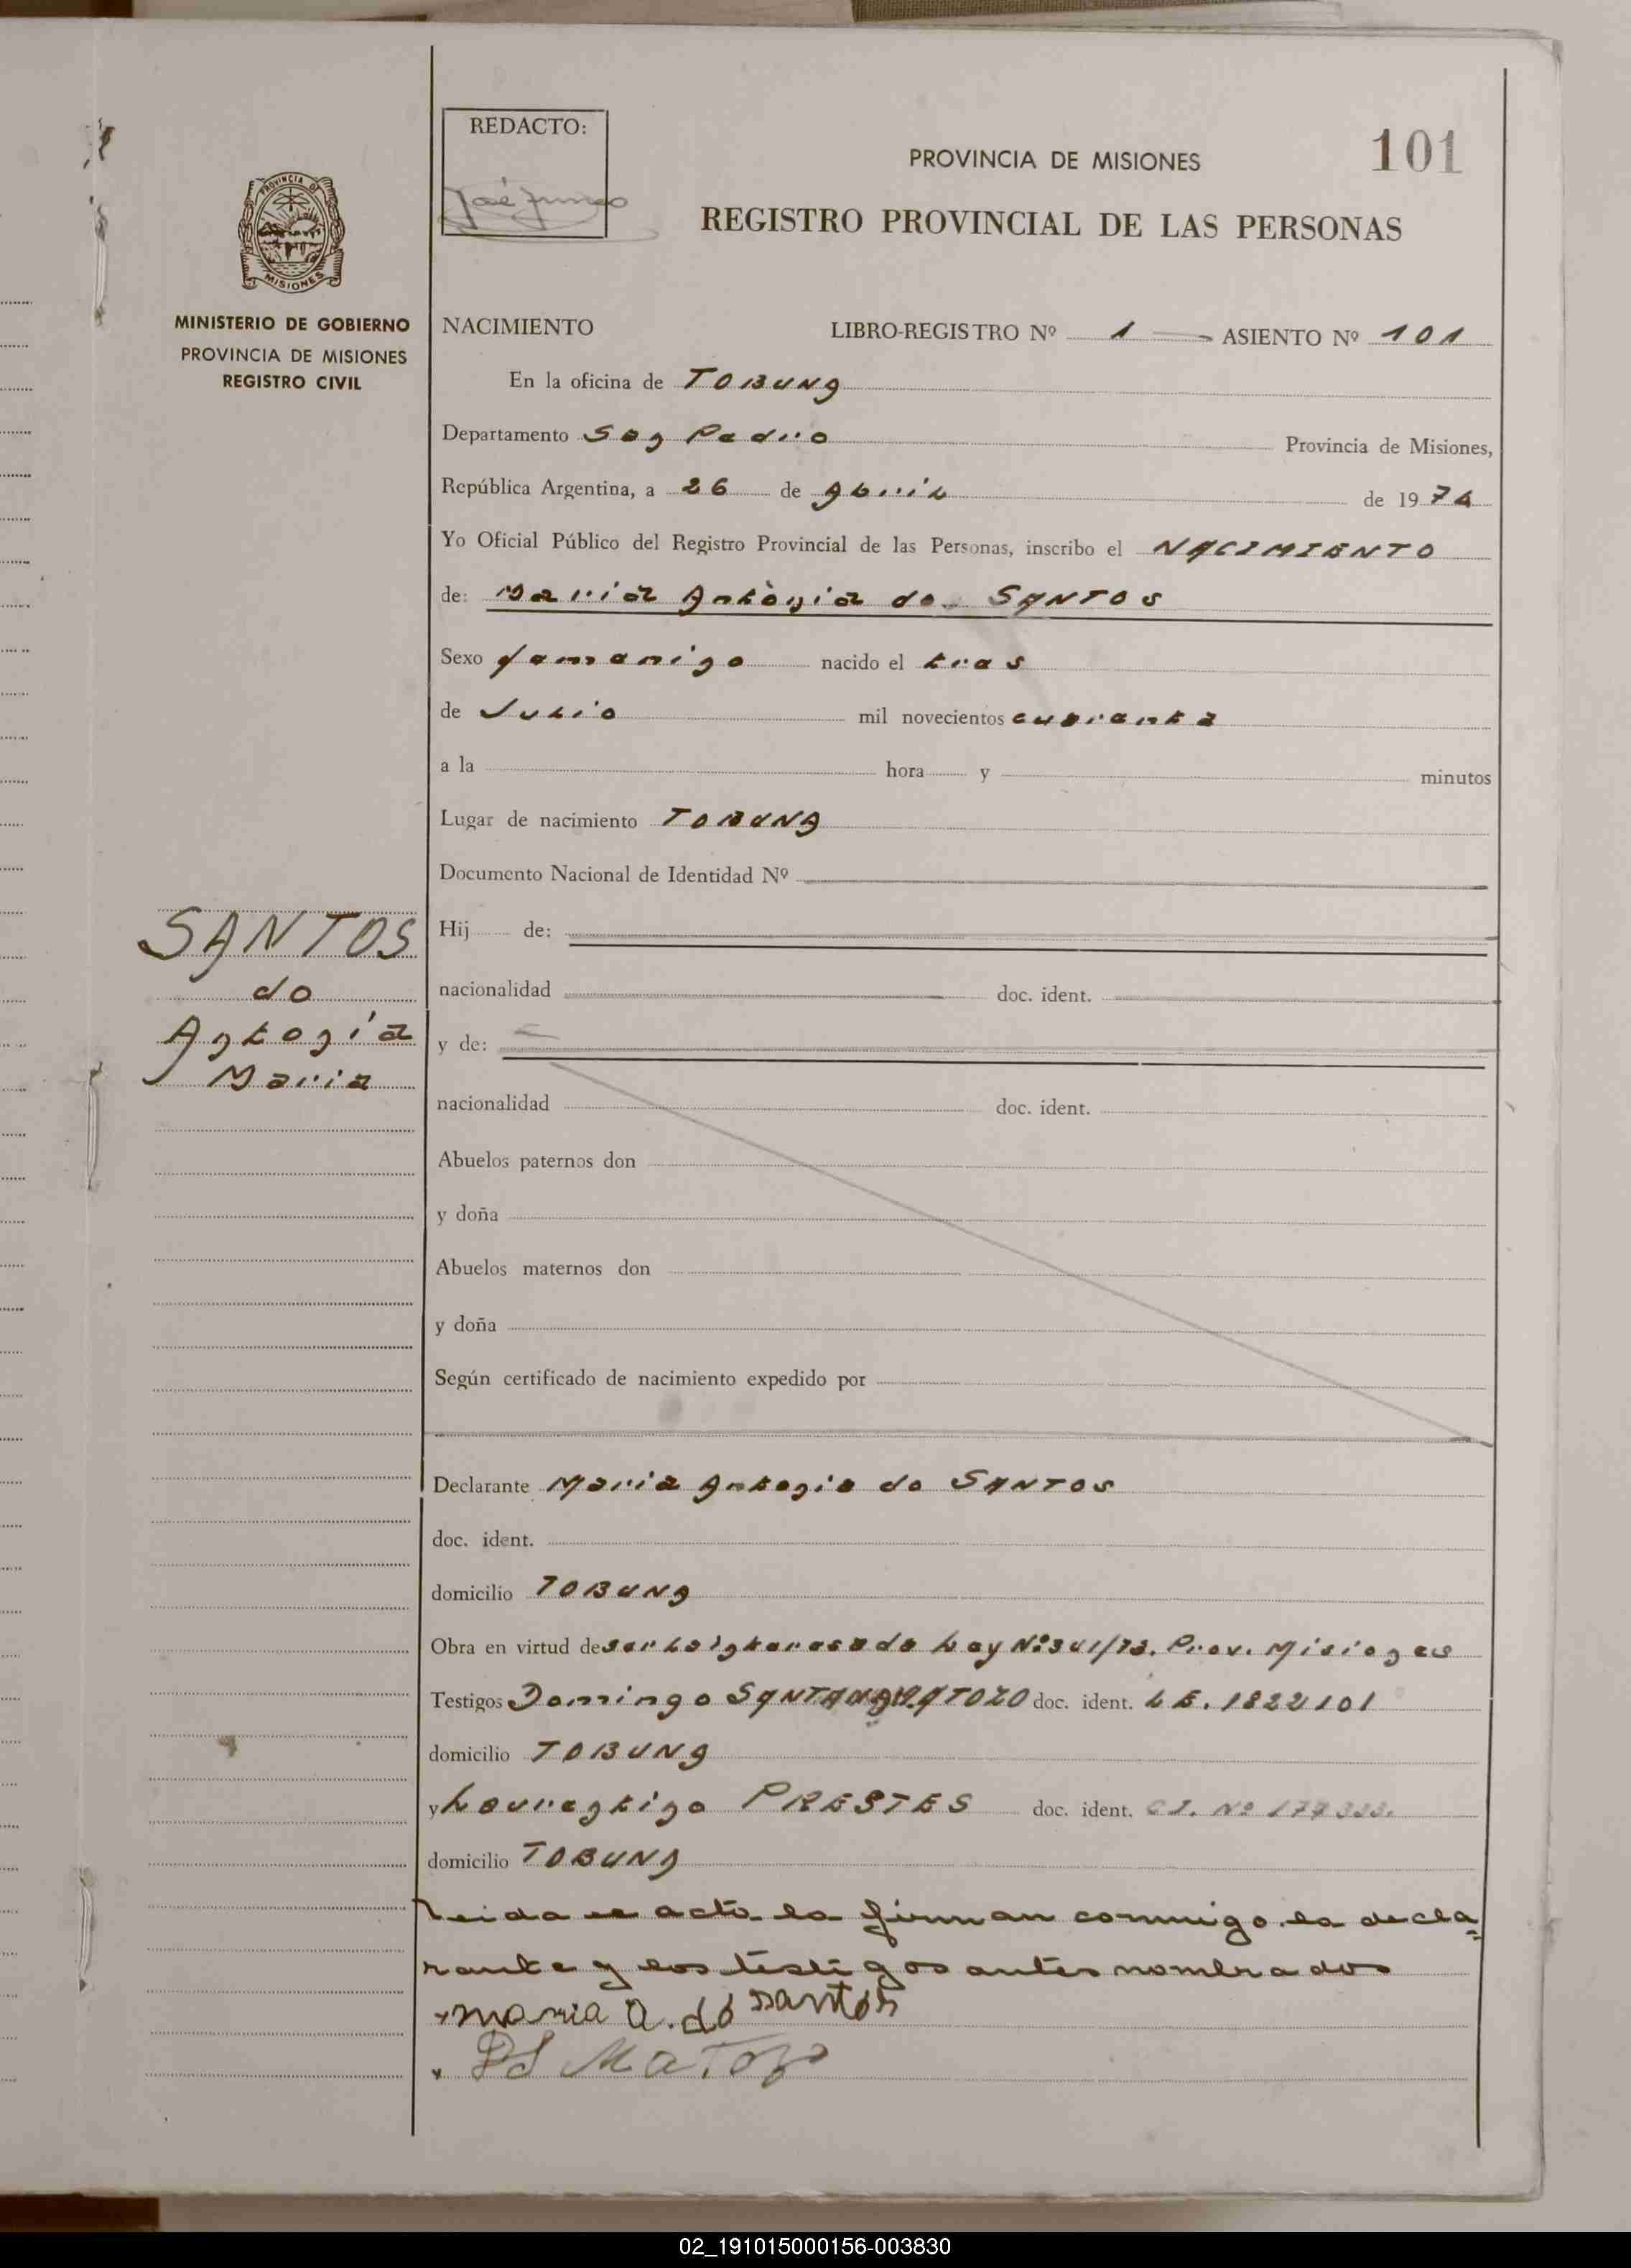 REDACTO:
José
PROVINCIA DE MISIONES
101
REGISTRO PROVINCIAL DE LAS PERSONAS
PROVINCIA DE
MISIONES
MINISTERIO DE GOBIERNO
PROVINCIA DE MISIONES
REGISTRO CIVIL
NACIMIENTO LIBRO-REGISTRO Nº 1 ASIENTO Nº 101
En la oficina de TOBUNA
Departamento San Pedro Provincia de Misiones,
República Argentina, a 26 de Abril de 1974
Yo Oficial Público del Registro Provincial de las Personas, inscribo el NACIMIENTO
de: Maria Antònia do SANTOS
Sexo femenino nacido el tres
de Julio mil novecientos cuarenta
a la hora y minutos
Lugar de nacimiento TOBUNA
Documento Nacional de Identidad Nº
Hij de:
nacionalidad doc. ident.
y de:
nacionalidad doc. ident.
Abuelos paternos don
y doña
Abuelos maternos don
y doña
Según certificado de nacimiento expedido por
SANTOS
do
Antonia
Maria
Declarante Maria Antonia do SANTOS
doc. ident.
domicilio TOBUNA
Obra en virtud de ser la interesada Ley Nº 341/73. Prov. Misiones
Testigos Domingo SANTANA MATOZO doc. ident. L E. 1822101
domicilio TOBUNA
y Laurentino PRESTES doc. ident. C I. Nº 177333.
domicilio TOBUNA
Leida el acta la firman conmigo la decla=
rante y los testigos antes nombrados
maria A. do santos
DS Matozo
02_191015000156-003830